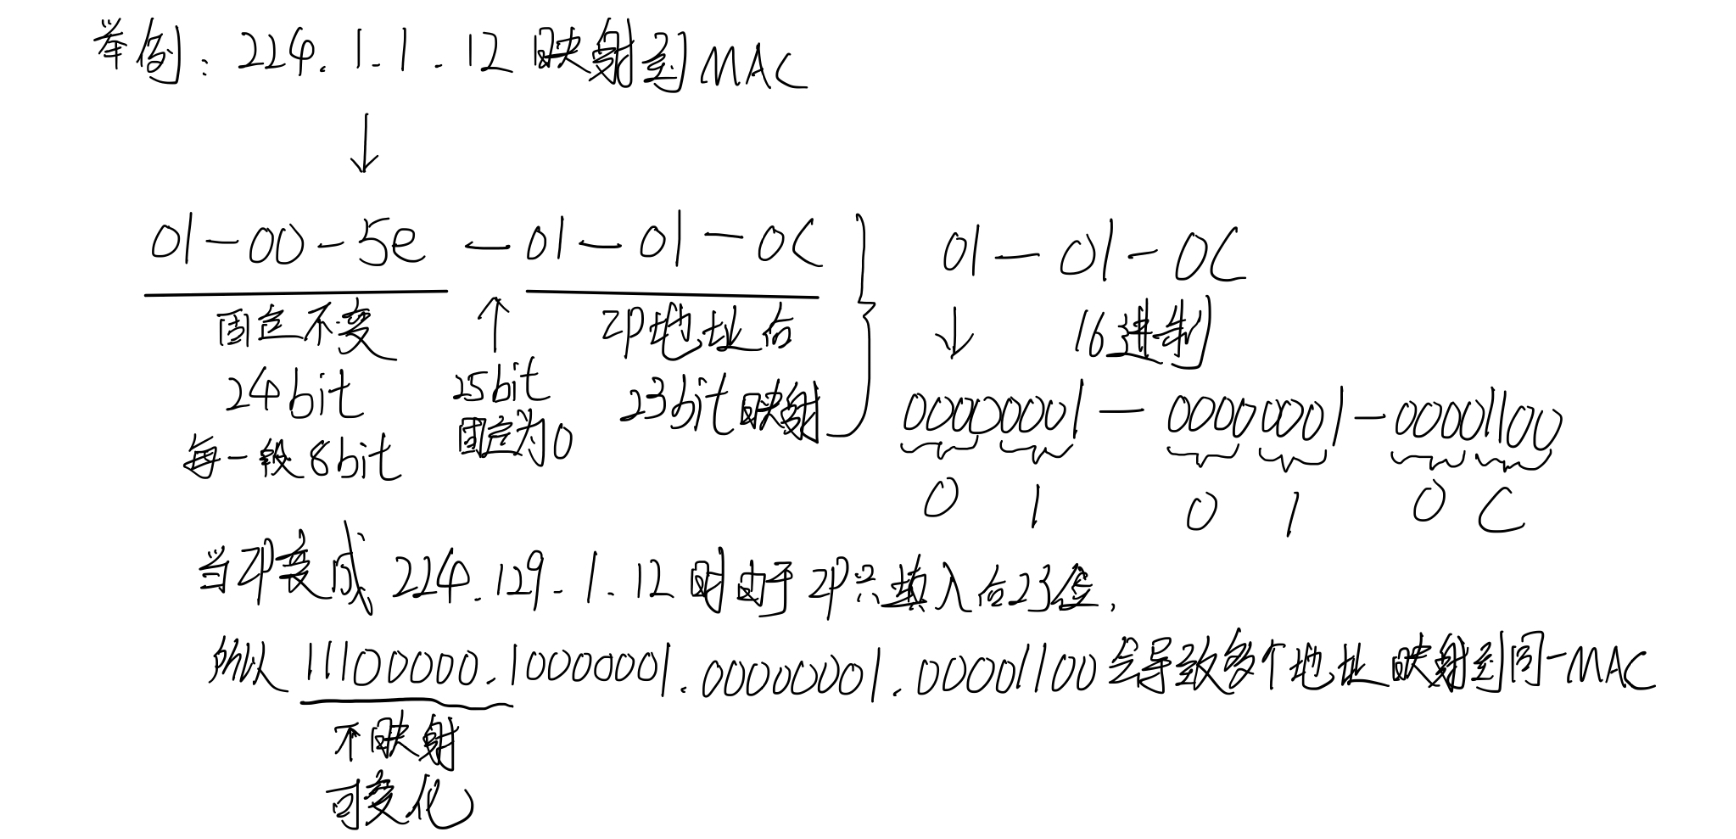 举例：224.1.1.12 映射到MAC
↓
01-00-5e-01-01-0C } 01-01-0C
固定不变 ↑ IP地址后 ↓ 16进制
24bit 25bit 23bit映射 00000001-00000001-00001100
每一段8bit 固定为0 0 1 0 1 0 C
当IP变成 224.129.1.12 时由于IP只填入后23位，
所以 11100000.10000001.00000001.00001100 会导致多个地址映射到同一MAC
不映射
可变化